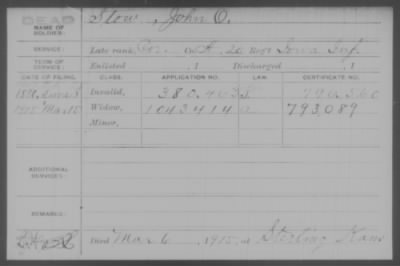 DEAD
NAME OF SOLDIER: Stow, John O.
SERVICE: Late rank, Co. A, 20 Reg't Iowa Inf.
TERM OF SERVICE: Enlisted , 1 Discharged , 1
DATE OF FILING. CLASS. APPLICATION NO. LAW. CERTIFICATE NO.
Invalid, 380,403
1915 Mar 15 Widow, 1043414 793,089
Minor,
ADDITIONAL SERVICES:
REMARKS:
Died Mar 6, 1915, at Sterling Kans